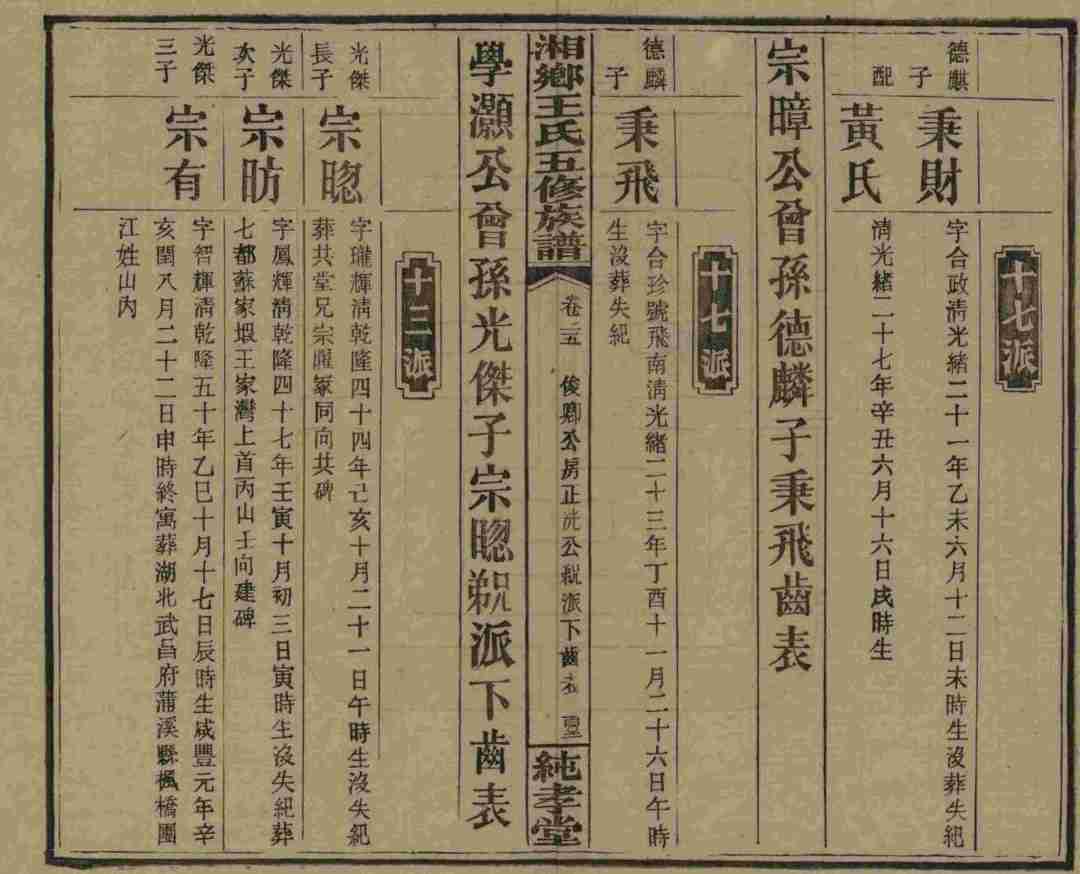 十七派
德麒子
秉財
字合政清光緒二十一年乙未六月十二日未時生沒葬失紀
配
黃氏
清光緒二十七年辛丑六月十六日戌時生
宗暲公曾孫德麟子秉飛齒表
十七派
德麟子
秉飛
字合珍號飛南清光緒二十三年丁酉十一月二十六日午時
生沒葬失紀
湘鄉王氏五修族譜
卷三五
俊卿公房正洗公綐派下齒表
純孝堂
學灝公曾孫光傑子宗聰綐派下齒表
十三派
光傑長子
宗聰
字瓏輝清乾隆四十四年己亥十月二十一日午時生沒失紀
葬共堂兄宗曜冢同向共碑
光傑次子
宗昉
字鳳輝清乾隆四十七年壬寅十月初三日寅時生沒失紀葬
七都蘇家塅王家灣上首丙山壬向建碑
光傑三子
宗有
字智輝清乾隆五十年乙巳十月十七日辰時生咸豐元年辛
亥閏八月二十二日申時終寓葬湖北武昌府蒲溪縣楓橋團
江姓山內